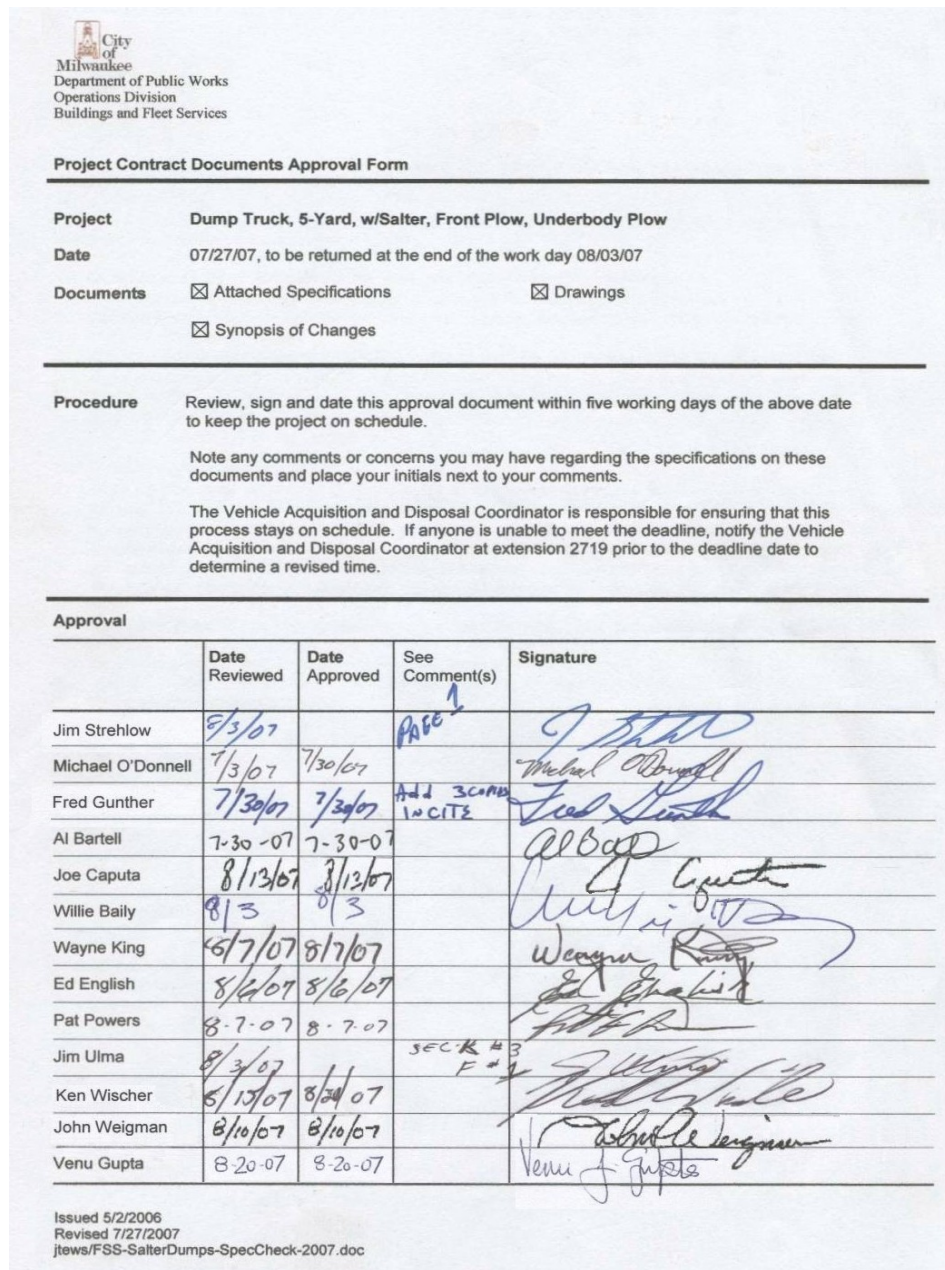 City
of
Milwaukee
Department of Public Works
Operations Division
Buildings and Fleet Services
Project Contract Documents Approval Form
Project Dump Truck, 5-Yard, w/Salter, Front Plow, Underbody Plow
Date 07/27/07, to be returned at the end of the work day 08/03/07
Documents ☒ Attached Specifications ☒ Drawings
☒ Synopsis of Changes
Procedure Review, sign and date this approval document within five working days of the above date
to keep the project on schedule.
Note any comments or concerns you may have regarding the specifications on these
documents and place your initials next to your comments.
The Vehicle Acquisition and Disposal Coordinator is responsible for ensuring that this
process stays on schedule. If anyone is unable to meet the deadline, notify the Vehicle
Acquisition and Disposal Coordinator at extension 2719 prior to the deadline date to
determine a revised time.
Approval
Date Date See Signature
Reviewed Approved Comment(s)
Jim Strehlow 8/3/07 PAGE 1
Michael O'Donnell 7/3/07 7/30/07 Michael O'Donnell
Fred Gunther 7/30/07 7/30/07 Add 3 COPIES Fred Gunth
IN CITE
Al Bartell 7-30-07 7-30-07 Al Bar
Joe Caputa 8/13/07 8/13/07 J Caputa
Willie Baily 8/3 8/3 Willie
Wayne King 8/7/07 8/7/07 Wayne King
Ed English 8/6/07 8/6/07 Ed English
Pat Powers 8-7-07 8-7-07
Jim Ulma 8/3/07 SEC-K #3
F #
Ken Wischer 8/15/07 8/20/07
John Weigman 8/10/07 8/10/07 John Weigman
Venu Gupta 8-20-07 8-20-07 Venu J. Gupta
Issued 5/2/2006
Revised 7/27/2007
jtews/FSS-SalterDumps-SpecCheck-2007.doc